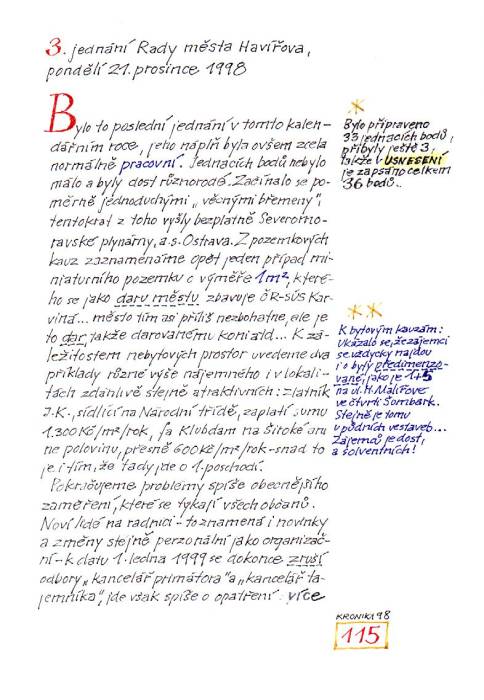 3. jednání Rady města Havířova,
pondělí 21. prosince 1998
Bylo to poslední jednání v tomto kalen-
dářním roce, jeho náplň byla ovšem zcela
normálně pracovní. Jednacích bodů nebylo
málo a byly dost různorodé. Začínalo se po-
měrně jednoduchými „věcnými břemeny",
tentokrát z toho vyšly bezplatně Severomo-
ravské plynárny, a.s. Ostrava. Z pozemkových
kauz zaznamenáme opět jeden případ mi-
niaturního pozemku o výměře 1m², které-
ho se jako daru městu zbavuje ČR-SÚS Kar-
viná... město tím asi příliš nezbohatne, ale je
to dar, takže darovanému koni atd... K zá-
ležitostem nebytových prostor uvedeme dva
příklady různé výše nájemného i v lokali-
tách zdánlivě stejně atraktivních: zlatník
J.K., sídlící na Národní třídě, zaplatí sumu
1.300 Kč/m²/rok, fa Klubdam na Široké onu
ne polovinu, přesně 600 Kč/m²/rok - snad to
je i tím, že tady jde o 1. poschodí.
Pokračujeme problémy spíše obecnějšího
zaměření, které se týkají všech občanů.
Noví lidé na radnici - to znamená i novinky
a změny stejně personální jako organizač-
ní - k datu 1. ledna 1999 se dokonce zruší
odbory „kancelář primátora" a „kancelář ta-
jemníka", jde však spíše o opatření více
*
Bylo připraveno
33 jednacích bodů,
přibyly ještě 3,
takže v USNESENÍ
je zapsáno celkem
36 bodů..
**
K bytovým kauzám:
Ukázalo se, že zájemci
se vždycky najdou
i o byty předimenzo-
vané, jako je 1+5
na ul. H. Malířové
ve čtvrti Šumbark.
Stejně je tomu
v půdních vestaveb...
Zájemců je dost,
a solventních!
KRONIKA 98
115